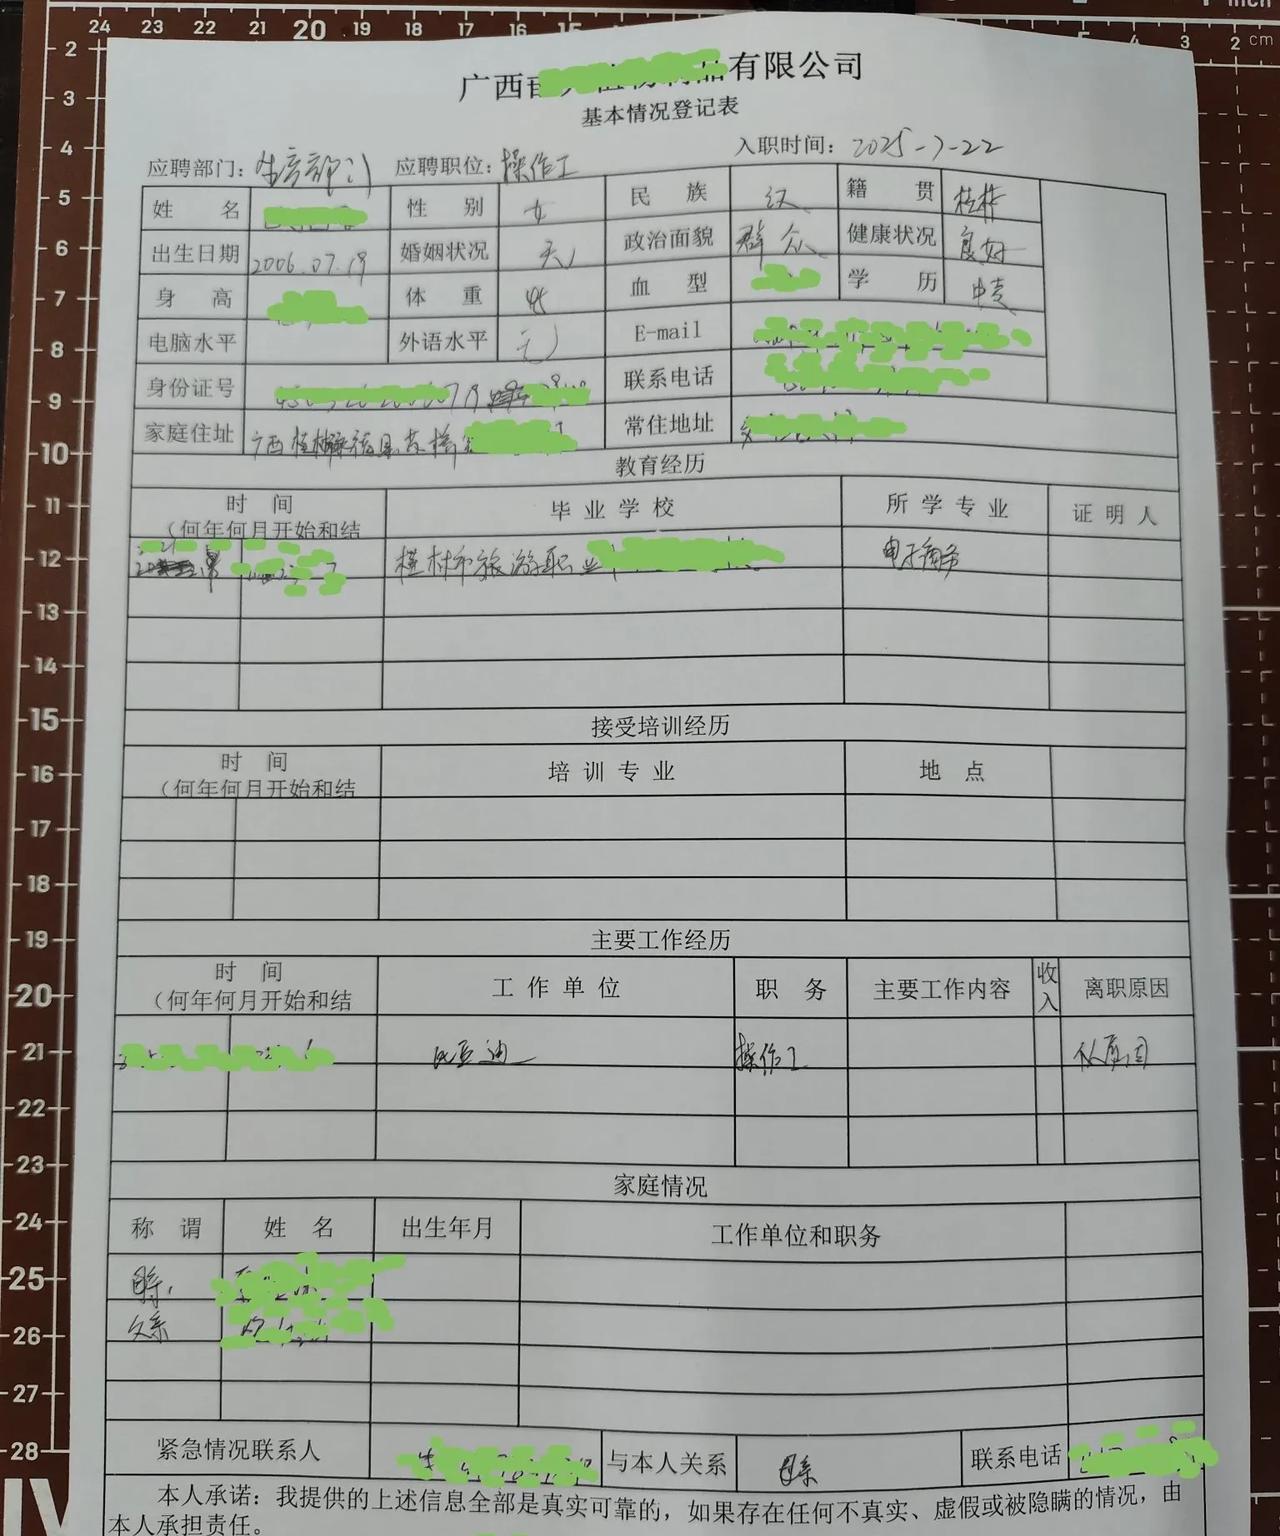 24 23 22 21 20 19 18 17 16 15
2 3 4 5 6 7 8 9 10 11 12 13 14 15 16 17 18 19 20 21 22 23 24 25 26 27 28
5 4 3 2 cm
广西 有限公司
基本情况登记表
应聘部门: 生产部门 应聘职位: 操作工 入职时间: 2025-7-22
姓 名 性 别 女 民 族 汉 籍 贯 桂林
出生日期 2006.07.19 婚姻状况 无 政治面貌 群众 健康状况 良好
身 高 体 重 血 型 学 历 中专
电脑水平 外语水平 无 E-mail
身份证号 联系电话
家庭住址 广西桂林 常住地址
教育经历
时 间 毕业学校 所学专业 证明人
(何年何月开始和结
桂林市旅游职业 电子商务
接受培训经历
时 间 培训专业 地 点
(何年何月开始和结
主要工作经历
时 间 工作单位 职 务 主要工作内容 收入 离职原因
(何年何月开始和结
比亚迪 操作工
家庭情况
称 谓 姓 名 出生年月 工作单位和职务
母亲
父亲
紧急情况联系人 与本人关系 母亲 联系电话
本人承诺: 我提供的上述信息全部是真实可靠的, 如果存在任何不真实、虚假或被隐瞒的情况, 由
本人承担责任。